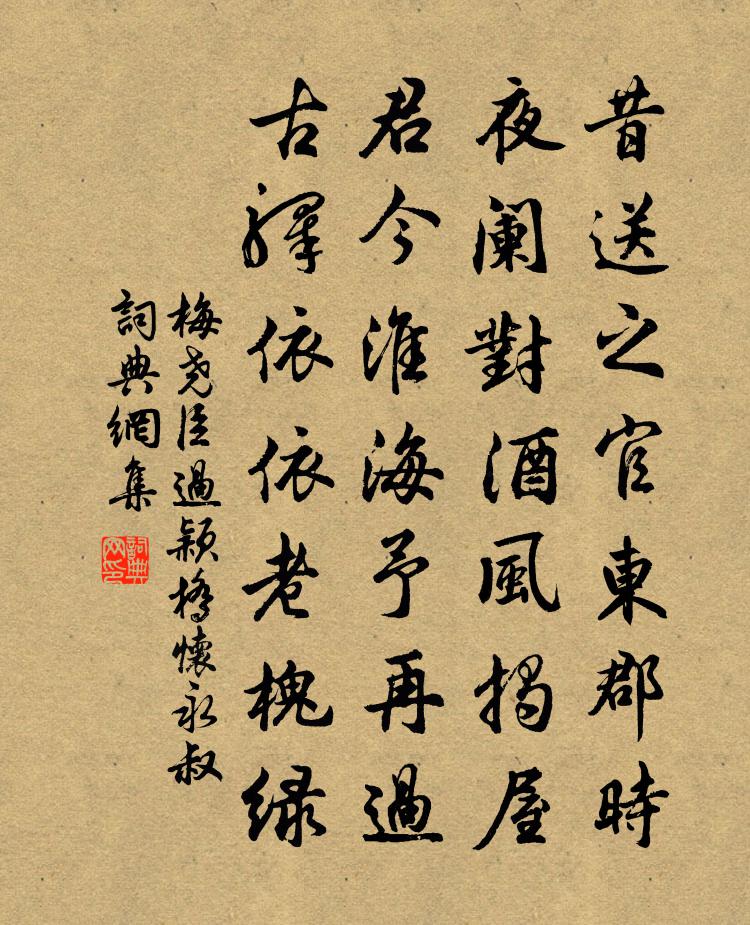 昔送之官東郡時
夜闌對酒風揭屋
君今淮海予再過
古驛依依老槐綠
梅堯臣過潁橋懷永叔
詞典網集
詞典網印